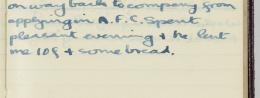 on way back to company from
applying in A.F.C. Spent
pleasant evening + he lent
me 10f + some bread.